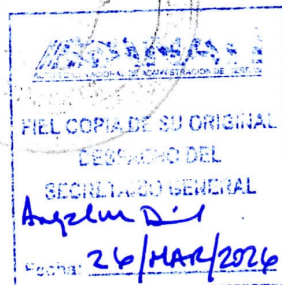 ANATI
AUTORIDAD NACIONAL DE ADMINISTRACIÓN DE TIERRAS
FIEL COPIA DE SU ORIGINAL
DESPACHO DEL
SECRETARIO GENERAL
Fecha: 26/MAR/2026